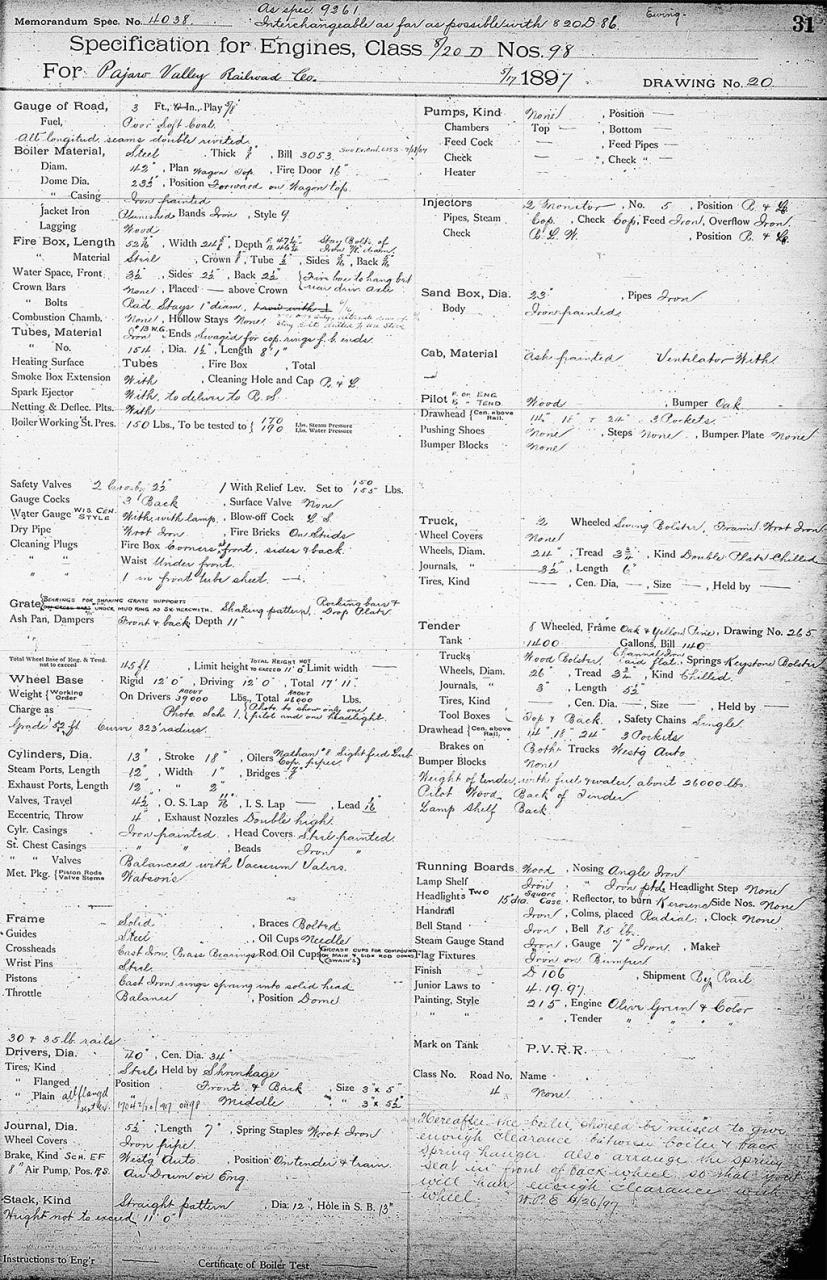 As spec. 9261 Ewing.
Memorandum Spec. No. 4038. Interchangeable as far as possible with 8 20 D 86. 31
Specification for Engines, Class 8/20 D Nos. 98
For Pajaro Valley Railroad Co. 5/17 1897 DRAWING No. 20
Gauge of Road, 3 Ft.,
Fuel, Poor Soft Coal.
All longitud. seams double riveted.
Boiler Material, Steel , Thick , Bill 3053.
Diam. 42" , Plan Wagon Top. , Fire Door 16"
Dome Dia. 23½" , Position Forward on Wagon top.
" Casing Iron painted
Jacket Iron Planished Bands Iron , Style 9
Lagging Wood
Fire Box, Length , Width , Depth Stay Bolts of
" Material Steel , Crown , Tube ½" , Sides , Back
Water Space, Front 3½" , Sides 2½" , Back 2½" Fire box to hang bet
Crown Bars None , Placed — above Crown rear driv. axles
" Bolts Rad. Stays 1" diam.,
Combustion Chamb. None , Hollow Stays None
Tubes, Material Iron , Ends Swaged for cop. rings f. b. ends.
" No. 154 , Dia. 1½" , Length 8' 1"
Heating Surface Tubes , Fire Box , Total
Smoke Box Extension With , Cleaning Hole and Cap R. & L.
Spark Ejector With, to deliver to R. S.
Netting & Deflec. Plts. With
Boiler Working St. Pres. 150 Lbs., To be tested to { 170 Lbs. Steam Pressure
190 Lbs. Water Pressure
Safety Valves 2 Crosby 2½" 1 With Relief Lev. Set to 150
155 Lbs.
Gauge Cocks 3 Back , Surface Valve None
Water Gauge WIS. CEN. STYLE With, with lamp. , Blow-off Cock L. S.
Dry Pipe Wrot Iron , Fire Bricks On Studs
Cleaning Plugs Fire Box Corners, front, sides & back.
" " Waist Under front.
" " 1 in front tube sheet. —
Grate { BEARINGS FOR SHAKING GRATE SUPPORTS
UNDER MUD RING AS SKETCH WITH. Shaking pattern. Rocking bars & Drop Plate
Ash Pan, Dampers Front & back Depth 11"
"
Total Wheel Base of Eng. & Tend. not to exceed 45 ft , Limit height TOTAL HEIGHT NOT TO EXCEED 11' 0" Limit width
Wheel Base Rigid 12' 0" , Driving 12' 0" , Total 17' 11"
Weight { Working Order On Drivers ABOUT 39000 Lbs., Total ABOUT 46000 Lbs.
Charge as — Photo. Sch 1. { Photo to show only one pilot and one headlight.
Grade 52 ft Curv. 323' radius.
Cylinders, Dia. 13" , Stroke 18" , Oilers Nathan #8 Sight feed Lub. Cop. pipes.
Steam Ports, Length 12" , Width 1" , Bridges
Exhaust Ports, Length 12 , " 2"
Valves, Travel 4½" , O. S. Lap , I. S. Lap — , Lead 1/16"
Eccentric, Throw 4" , Exhaust Nozzles Double high.
Cylr. Casings Iron painted , Head Covers Steel painted.
St. Chest Casings " " Beads Iron "
" " Valves Balanced with Vacuum Valves.
Met. Pkg. { Piston Rods
Valve Stems Watson's
Frame Solid , Braces Bolted
Guides Steel , Oil Cups Needle
Crossheads Cast Iron, Brass Bearings Rod Oil Cups { GREASE CUPS FOR COMPOUND
ON MAIN & SIDE ROD (SWAIN'S)
Wrist Pins Steel.
Pistons Cast Iron rings sprung into solid head
Throttle Balance , Position Dome
30 & 35 lb. rails
Drivers, Dia. 40" , Cen. Dia. 34"
Tires, Kind Steel Held by Shrinkage
" Flanged Position Front & Back , Size 3" x 5"
" Plain all flangd Middle , " 3" x 5½"
Journal, Dia. 5½" , Length 7" , Spring Staples Wrot Iron
Wheel Covers Iron pipe.
Brake, Kind SCH. EF Westg Auto. , Position On tender & train.
8" Air Pump, Pos. R.S. Air Drum on Eng.
Stack, Kind Straight pattern , Dia. 12" , Hole in S. B. 13"
Height not to exceed 11' 0"
Instructions to Eng'r Certificate of Boiler Test
Pumps, Kind None , Position —
Chambers Top — , Bottom —
Feed Cock — , Feed Pipes —
Check — , Check " —
Heater —
Injectors 2 Monitor , No. 5 , Position R. & L.
Pipes, Steam Cop. , Check Cop., Feed Iron, Overflow Iron.
Check B. L. W. , Position R. & L.
Sand Box, Dia. 23" , Pipes Iron
Body Iron painted
Cab, Material Ash painted Ventilator With
Pilot F. OF ENG.
" TEND. Wood , Bumper Oak
Drawhead { Cen. above Rail. 14" 18" & 24" 3 Pockets.
Pushing Shoes None , Steps None , Bumper Plate None
Bumper Blocks None
Truck, 2 Wheeled Swing Bolster, Frame Wrot Iron
Wheel Covers None
Wheels, Diam. 24" , Tread 3¾" , Kind Double Plate Chilled
Journals, " 3½" , Length 6"
Tires, Kind — , Cen. Dia. — , Size — , Held by —
Tender 8 Wheeled, Frame Oak & Yellow Pine , Drawing No. 265
Tank 1400 Gallons, Bill 140
Trucks Wood Bolster, Channel Iron laid flat. Springs Keystone Bolster
Wheels, Diam. 26" , Tread 3¾" , Kind Chilled
Journals, " 3" , Length 5½"
Tires, Kind — , Cen. Dia. — , Size — , Held by —
Tool Boxes Top & Back. , Safety Chains Single
Drawhead { Cen. above Rail, 14" 18" 24" 3 Pockets
Brakes on Both Trucks Westg Auto
Bumper Blocks None
Weight of tender, with fuel & water, about 26000 lbs.
Pilot Wood Back of Tender
Lamp Shelf Back
Running Boards Wood , Nosing Angle Iron
Lamp Shelf Iron , " Iron ptd. Headlight Step None
Headlights Two 15" dia. Square Case , Reflector, to burn Kerosene Side Nos. None
Handrail Iron , Colms, placed Radial , Clock None
Bell Stand Iron , Bell 85 lb.
Steam Gauge Stand Iron , Gauge 7" Iron , Maker
Flag Fixtures Iron on Bumper
Finish D 106 , Shipment By Rail
Junior Laws to 4.19.97.
Painting, Style 215 , Engine Olive Green & Color
" " , Tender " " "
Mark on Tank P.V.R.R.
Class No. Road No. Name
4 None.
Hereafter the boiler should be raised to give
enough clearance between boiler & back
spring hanger. also arrange the spring
seat in front of back wheel so that you
will have enough clearance with
wheel. W.P.E 6/26/97